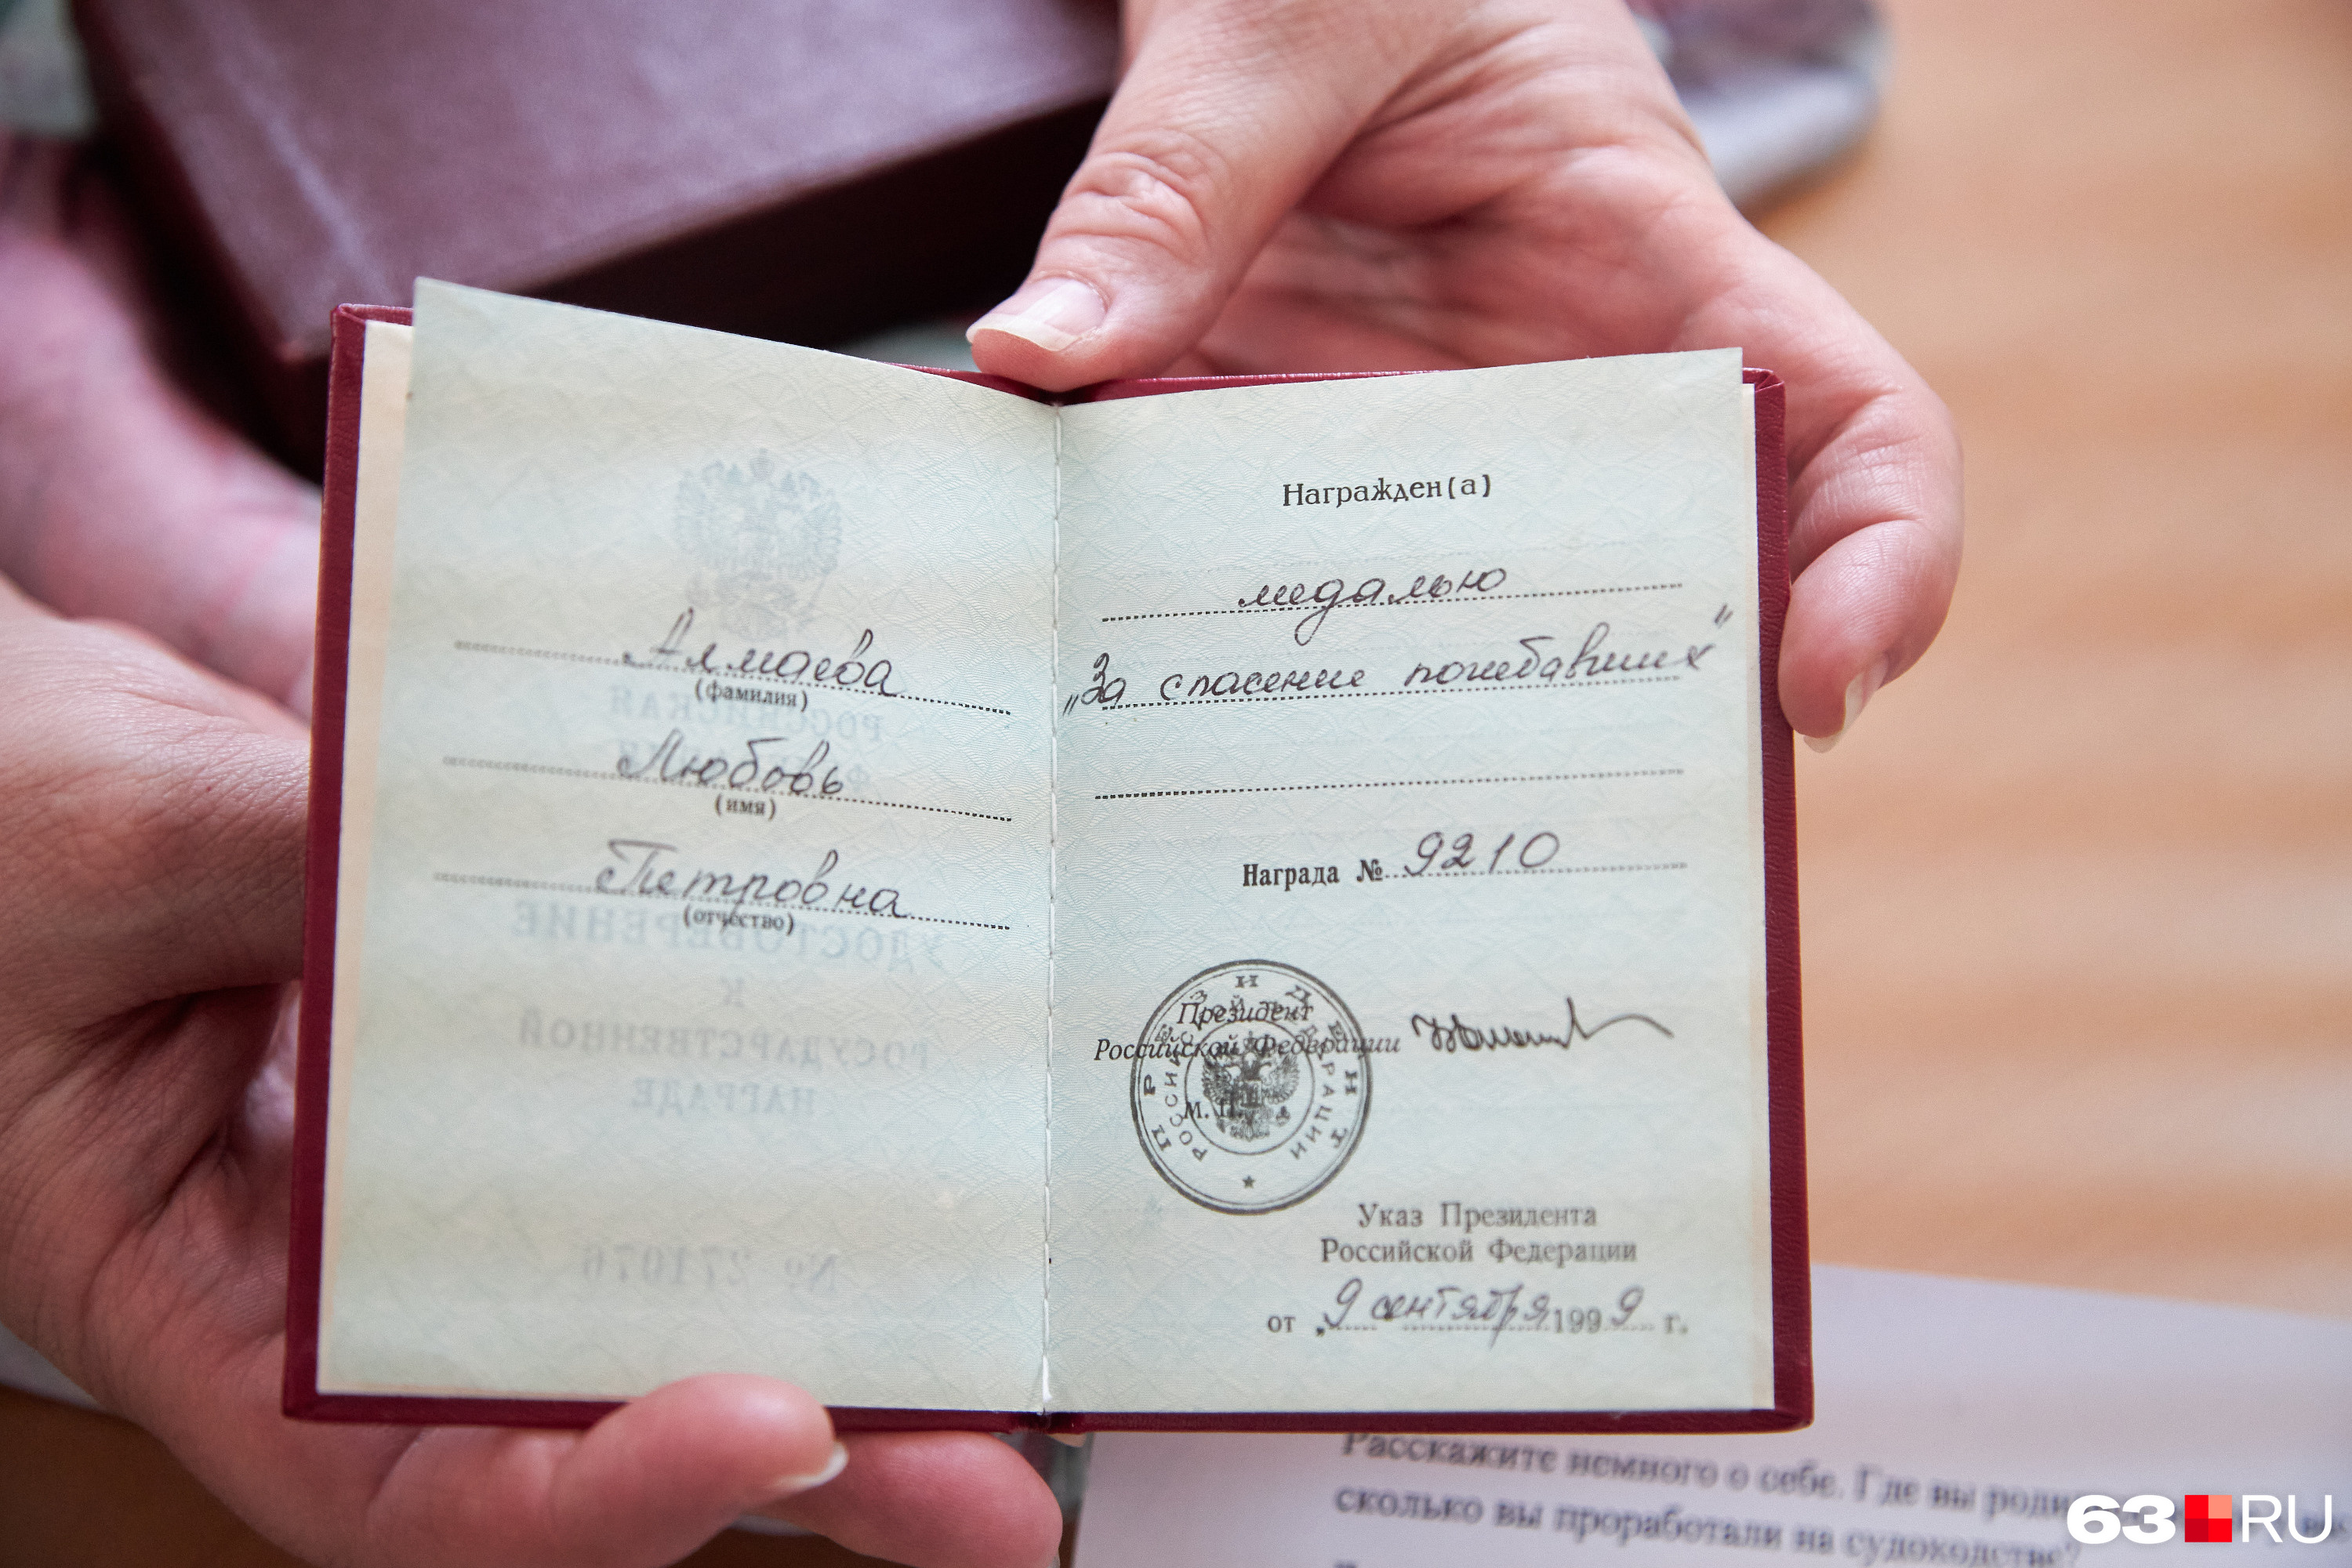 Алмаева
(фамилия)
Любовь
(имя)
Петровна
(отчество)
РОССИЙСКАЯ
УДОСТОВЕРЕНИЕ
К
ГОСУДАРСТВЕННОЙ
НАГРАДЕ
№ 271076
Награжден(а)
медалью
„За спасение погибавших"
Награда № 9210
Президент
Российской Федерации
М. П.
ПРЕЗИДЕНТ
РОССИЙСКОЙ ФЕДЕРАЦИИ
Указ Президента
Российской Федерации
от „9 сентября 1999 г.
Расскажите немного о себе. Где вы
сколько вы проработали на судоходстве?
63 RU